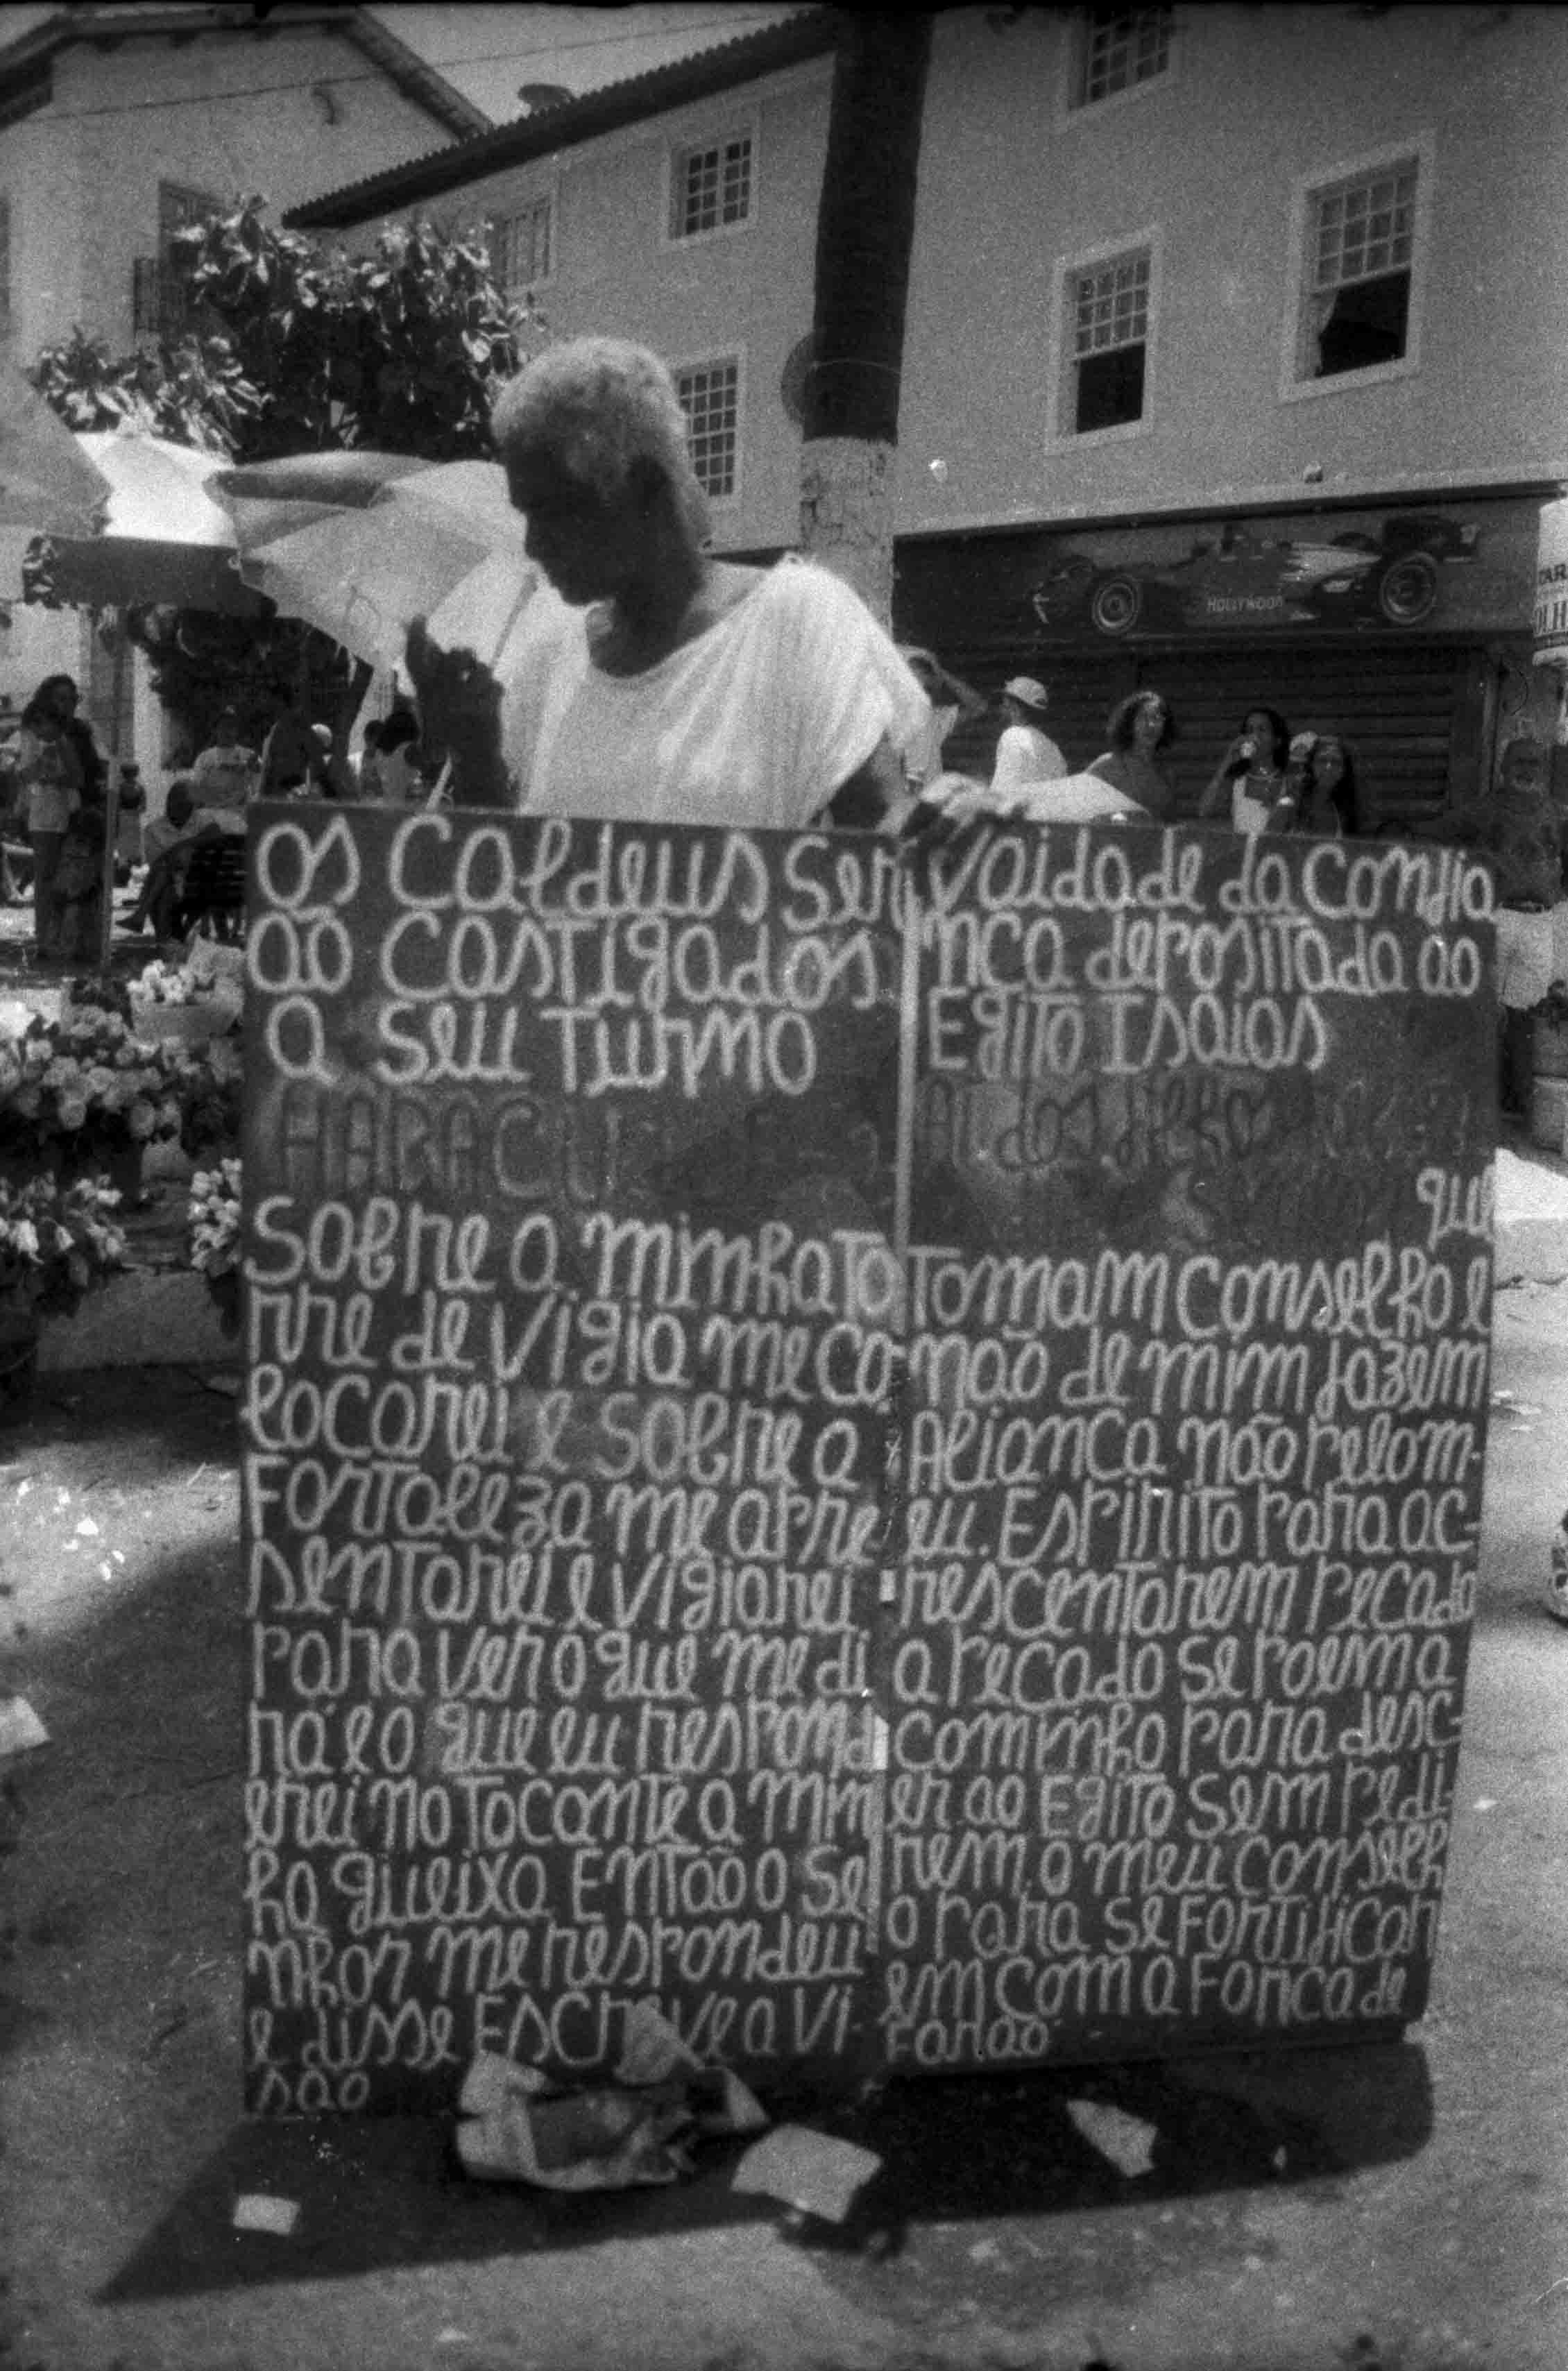 os Caldeus ser
ão Castigados
a seu Turno
HARACU
Sobre a minha To
rre de Vigia me Co
locarei e sobre a
Fortaleza me apre
sentarei e Vigiarei
para ver o que me di
rá e o que eu respond
erei no Tocante a min
ha queixa Então o Se
nhor me respondeu
e disse Escreve a Vi-
são
Vaidade da Confia
nca depositada ao
Egito Isaias
que
Tomam Conselho e
não de mim fazem
Alianca não pelo m-
eu Espirito para ac-
rescentarem pecado
a pecado se poem a
caminho para desc-
er ao Egito Sem pedi-
rem o meu Conselh
o para se Fortificar
em Com a Forca de
Farao
HOLLYWOOD